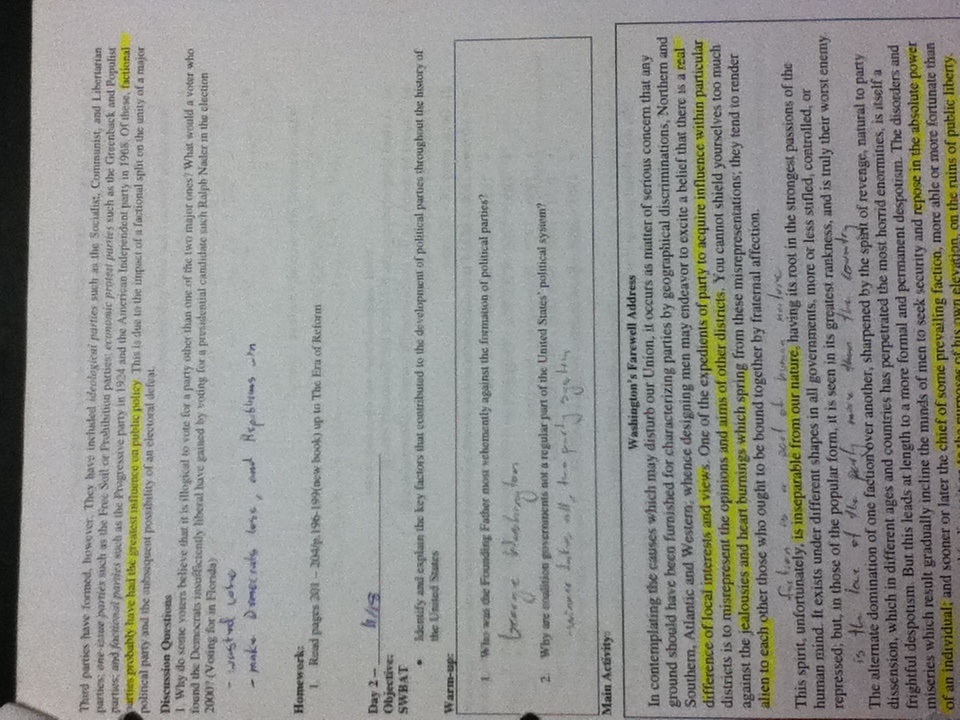 Third parties have formed, however. They have included ideological parties such as the Socialist, Communist, and Libertarian
parties; one-issue parties such as the Free Soil or Prohibition parties; economic protest parties such as the Greenback and Populist
parties; and factional parties such as the Progressive party in 1924 and the American Independent party in 1968. Of these, factional
parties probably have had the greatest influence on public policy. This is due to the impact of a factional split on the unity of a major
political party and the subsequent possibility of an electoral defeat.
Discussion Questions
1. Why do some voters believe that it is illogical to vote for a party other than one of the two major ones? What would a voter who
found the Democrats insufficiently liberal have gained by voting for a presidential candidate such Ralph Nader in the election
2000? (Voting for in Florida)
- wasted vote
- make Democrats lose, and Republicans win
Homework:
1. Read pages 201 – 204/p.196-199(new book) up to The Era of Reform
Day 2 –
Objective:
SWBAT
• Identify and explain the key factors that contributed to the development of political parties throughout the history of
the United States
Warm-up:
1. Who was the Founding Father most vehemently against the formation of political parties?
George Washington
2. Why are coalition governments not a regular part of the United States' political system?
-winner takes all, two party system
Main Activity:
Washington's Farewell Address
In contemplating the causes which may disturb our Union, it occurs as matter of serious concern that any
ground should have been furnished for characterizing parties by geographical discriminations, Northern and
Southern, Atlantic and Western; whence designing men may endeavor to excite a belief that there is a real
difference of local interests and views. One of the expedients of party to acquire influence within particular
districts is to misrepresent the opinions and aims of other districts. You cannot shield yourselves too much
against the jealousies and heart burnings which spring from these misrepresentations; they tend to render
alien to each other those who ought to be bound together by fraternal affection.
faction is a part of human nature
This spirit, unfortunately, is inseparable from our nature, having its root in the strongest passions of the
human mind. It exists under different shapes in all governments, more or less stifled, controlled, or
repressed; but, in those of the popular form, it is seen in its greatest rankness, and is truly their worst enemy.
is the love of the party more than the country
The alternate domination of one faction over another, sharpened by the spirit of revenge, natural to party
dissension, which in different ages and countries has perpetrated the most horrid enormities, is itself a
frightful despotism. But this leads at length to a more formal and permanent despotism. The disorders and
miseries which result gradually incline the minds of men to seek security and repose in the absolute power
of an individual; and sooner or later the chief of some prevailing faction, more able or more fortunate than
to the purposes of his own elevation, on the ruins of public liberty.